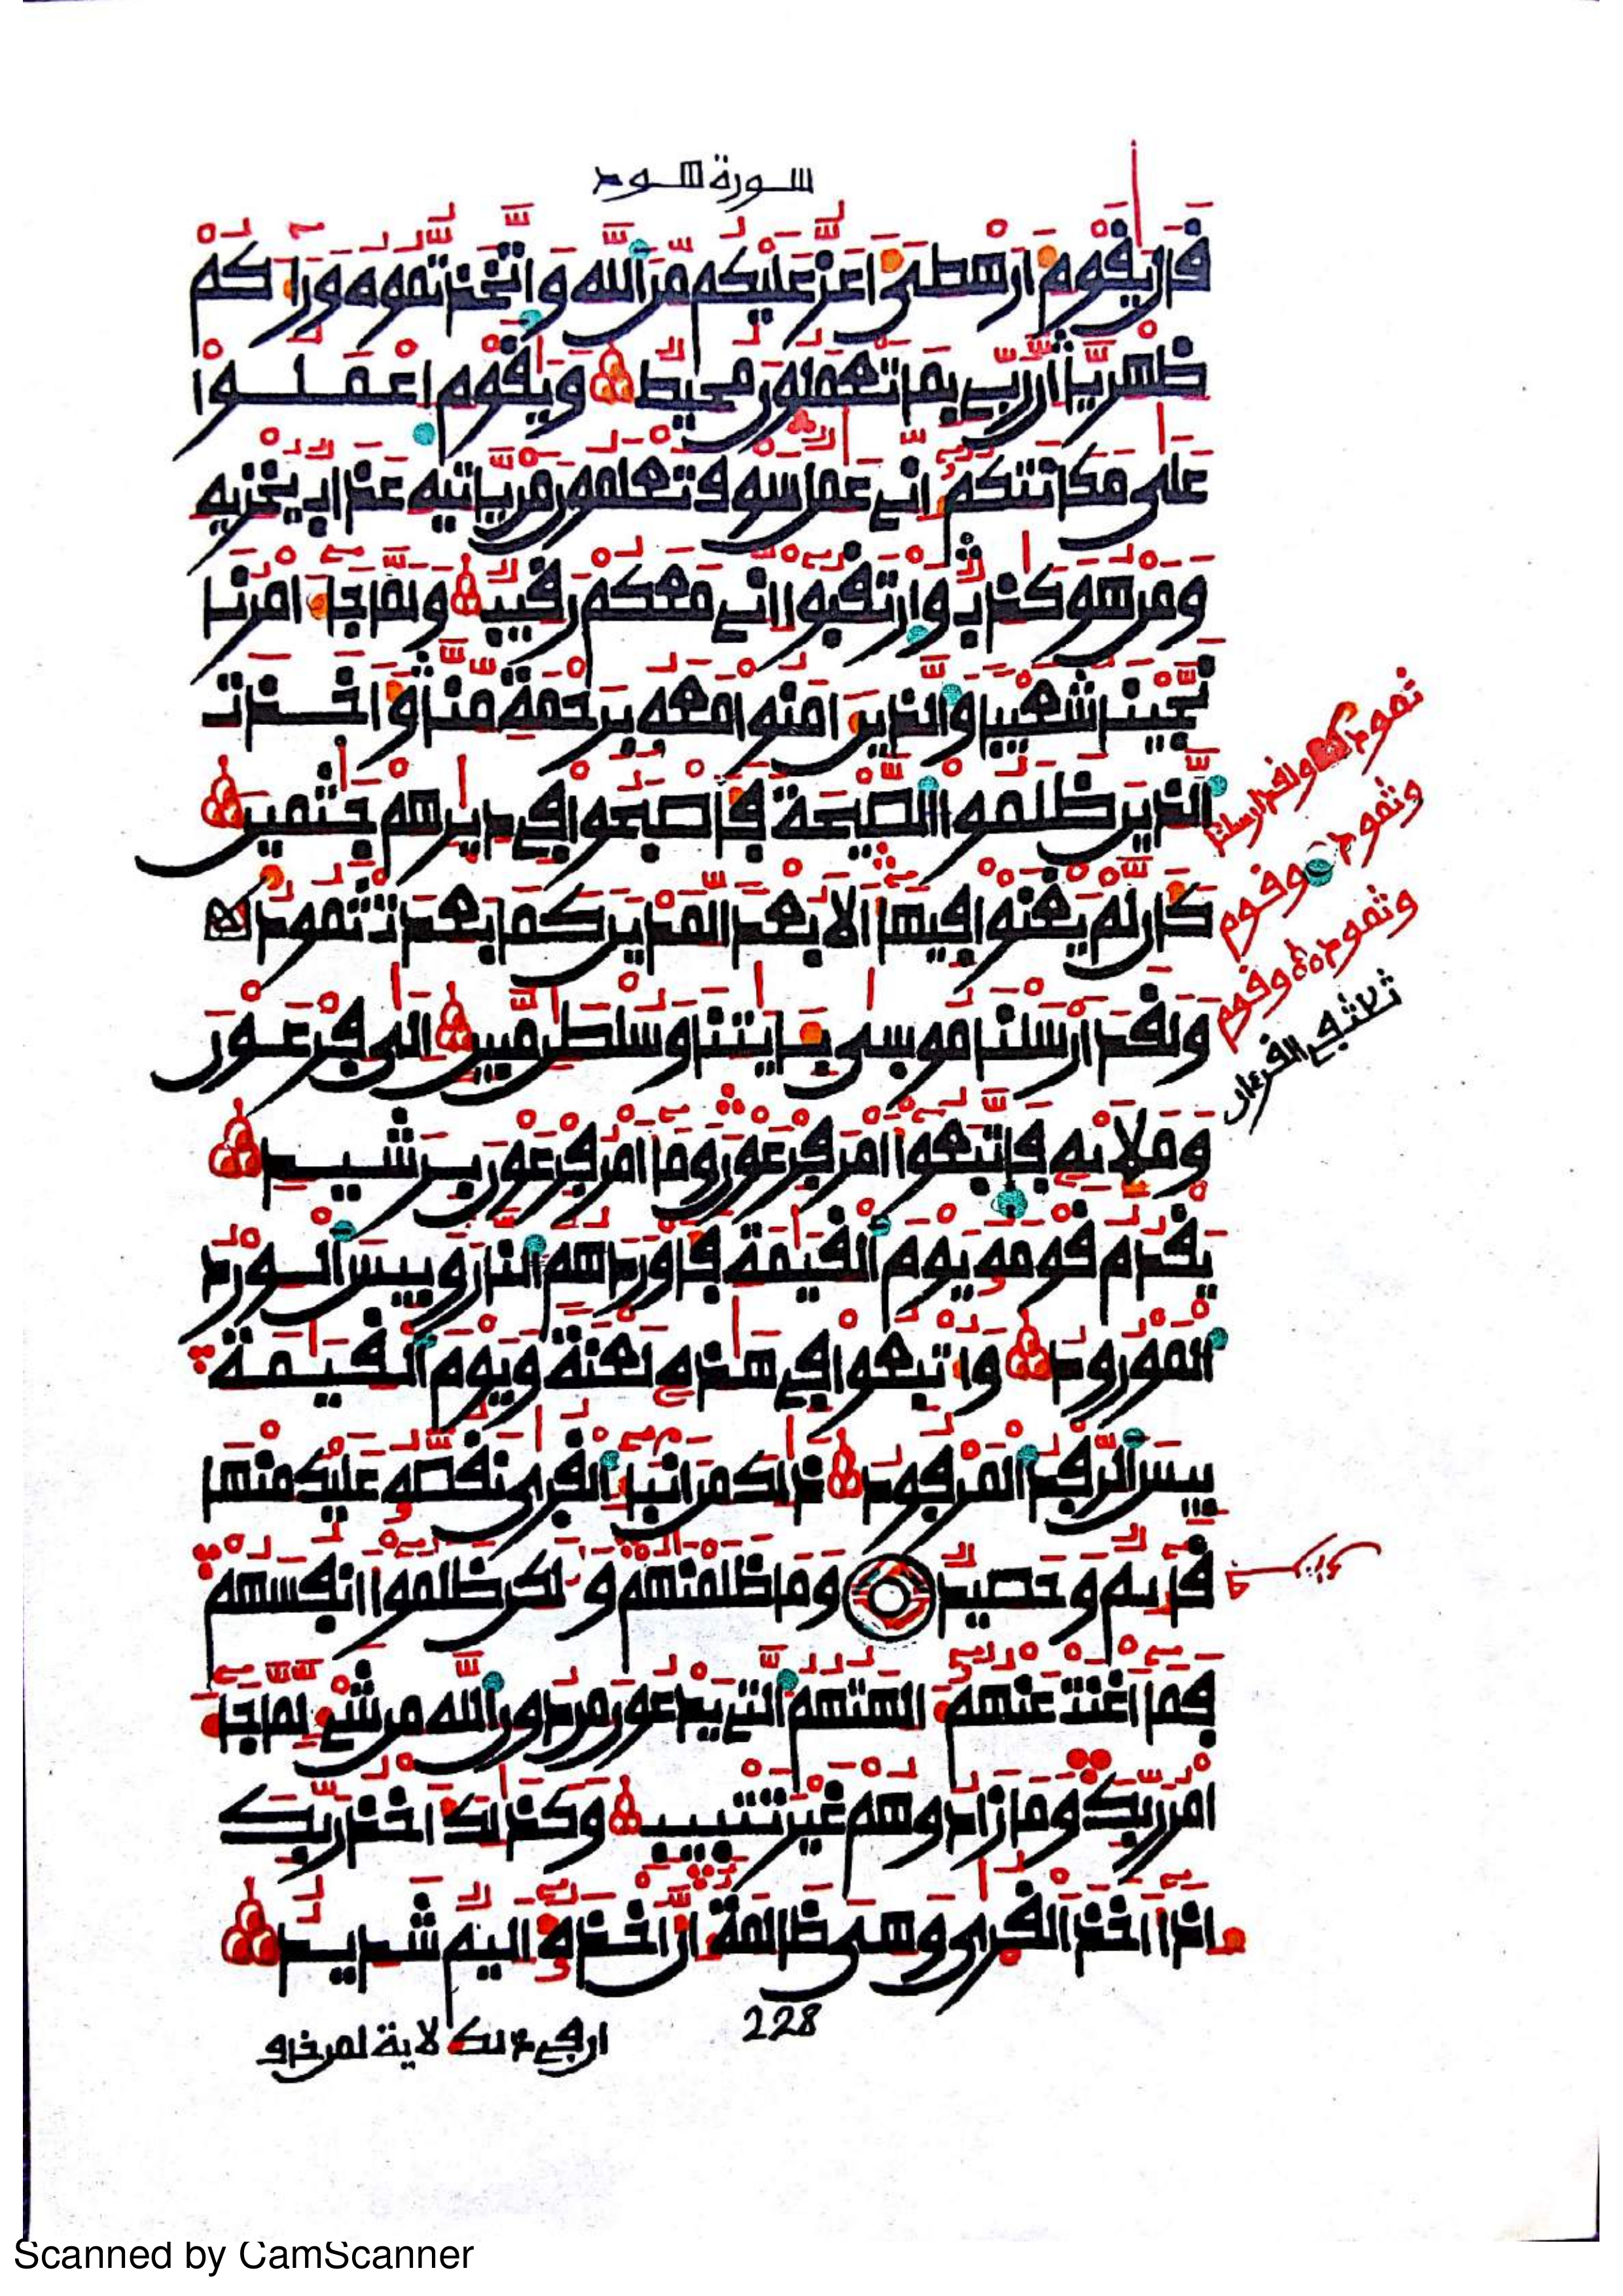 سورة هود
قَالَ يَٰقَوْمِ أَرَهْطِيَ أَعَزُّ عَلَيْكُم مِّنَ اَللَّهِ وَاَتَّخَذتُّمُوهُ وَرَآءَكُمْ
ظِهْرِيّاً إِنَّ رَبِّي بِمَا تَعْمَلُونَ مُحِيطٌ وَيَٰقَوْمِ اِعْمَلُوا
عَلَىٰ مَكَانَتِكُمُ إِنِّي عَٰمِلٌ سَوْفَ تَعْلَمُونَ مَن يَاتِيهِ عَذَابٌ يُخْزِيهِ
وَمَنْ هُوَ كَٰذِبٌ وَارْتَقِبُوا إِنِّي مَعَكُمْ رَقِيبٌ وَلَمَّا جَآءَ امْرُنَا
نَجَّيْنَا شُعَيْباً وَالذِينَ ءَامَنُوا مَعَهُ بِرَحْمَةٍ مِّنَّا وَأَخَذَتِ
اِلذِينَ ظَلَمُوا اُلصَّيْحَةُ فَأَصْبَحُوا فِي دِيٰرِهِمْ جَٰثِمِينَ
كَأَن لَّمْ يَغْنَوْا فِيهَا أَلَا بُعْداً لِّمَدْيَنَ كَمَا بَعِدَتْ ثَمُودُ
وَلَقَدَ اَرْسَلْنَا مُوسَىٰ بِـَٔايَٰتِنَا وَسُلْطَٰنٍ مُّبِينٍ إِلَىٰ فِرْعَوْنَ
وَمَلَإِيْهِ فَاتَّبَعُوا أَمْرَ فِرْعَوْنَ وَمَا أَمْرُ فِرْعَوْنَ بِرَشِيدٍ
يَقْدُمُ قَوْمَهُ يَوْمَ اَلْقِيَٰمَةِ فَأَوْرَدَهُمُ النَّارَ وَبِيسَ اَلْوِرْدُ
اُلْمَوْرُودُ وَأُتْبِعُوا فِي هَٰذِهِ لَعْنَةً وَيَوْمَ اَلْقِيَٰمَةِ
بِيسَ اَلرِّفْدُ اُلْمَرْفُودُ ذَٰلِكَ مِنَ اَنۢبَآءِ اِلْقُرَىٰ نَقُصُّهُ عَلَيْكَ مِنْهَا
قَآئِمٌ وَحَصِيدٌ وَمَا ظَلَمْنَٰهُمْ وَلَٰكِن ظَلَمُوا أَنفُسَهُمْ
فَمَا أَغْنَتْ عَنْهُمُ ءَالِهَتُهُمُ اُلتِي يَدْعُونَ مِن دُونِ اِللَّهِ مِن شَيْءٍ لَّمَّا جَآءَ
امْرُ رَبِّكَ وَمَا زَادُوهُمْ غَيْرَ تَتْبِيبٍ وَكَذَٰلِكَ أَخْذُ رَبِّكَ
إِذَا أَخَذَ اَلْقُرَىٰ وَهِيَ ظَٰلِمَةٌ اِنَّ أَخْذَهُ أَلِيمٌ شَدِيدٌ
ثمود ولقد ارسلنا
وثمود وقوم
وثمود وقوم
ثلاث في القرءان
228
Scanned by CamScanner